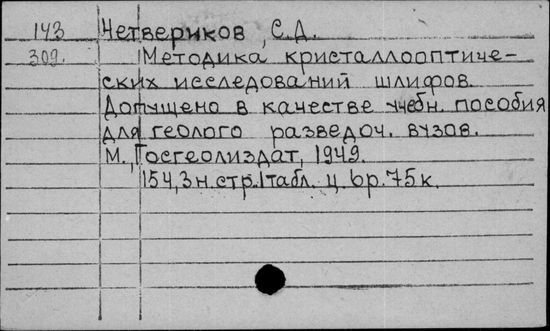 143 Четвериков, С.Д.
309. Методика кристаллооптиче-
ских исследований шлифов.
Допущено в качестве учебн. пособия
для геолого разведоч. вузов.
М., Госгеолиздат, 1949.
154, 3 н. стр. 1 табл. ц. 6 р. 75 к.